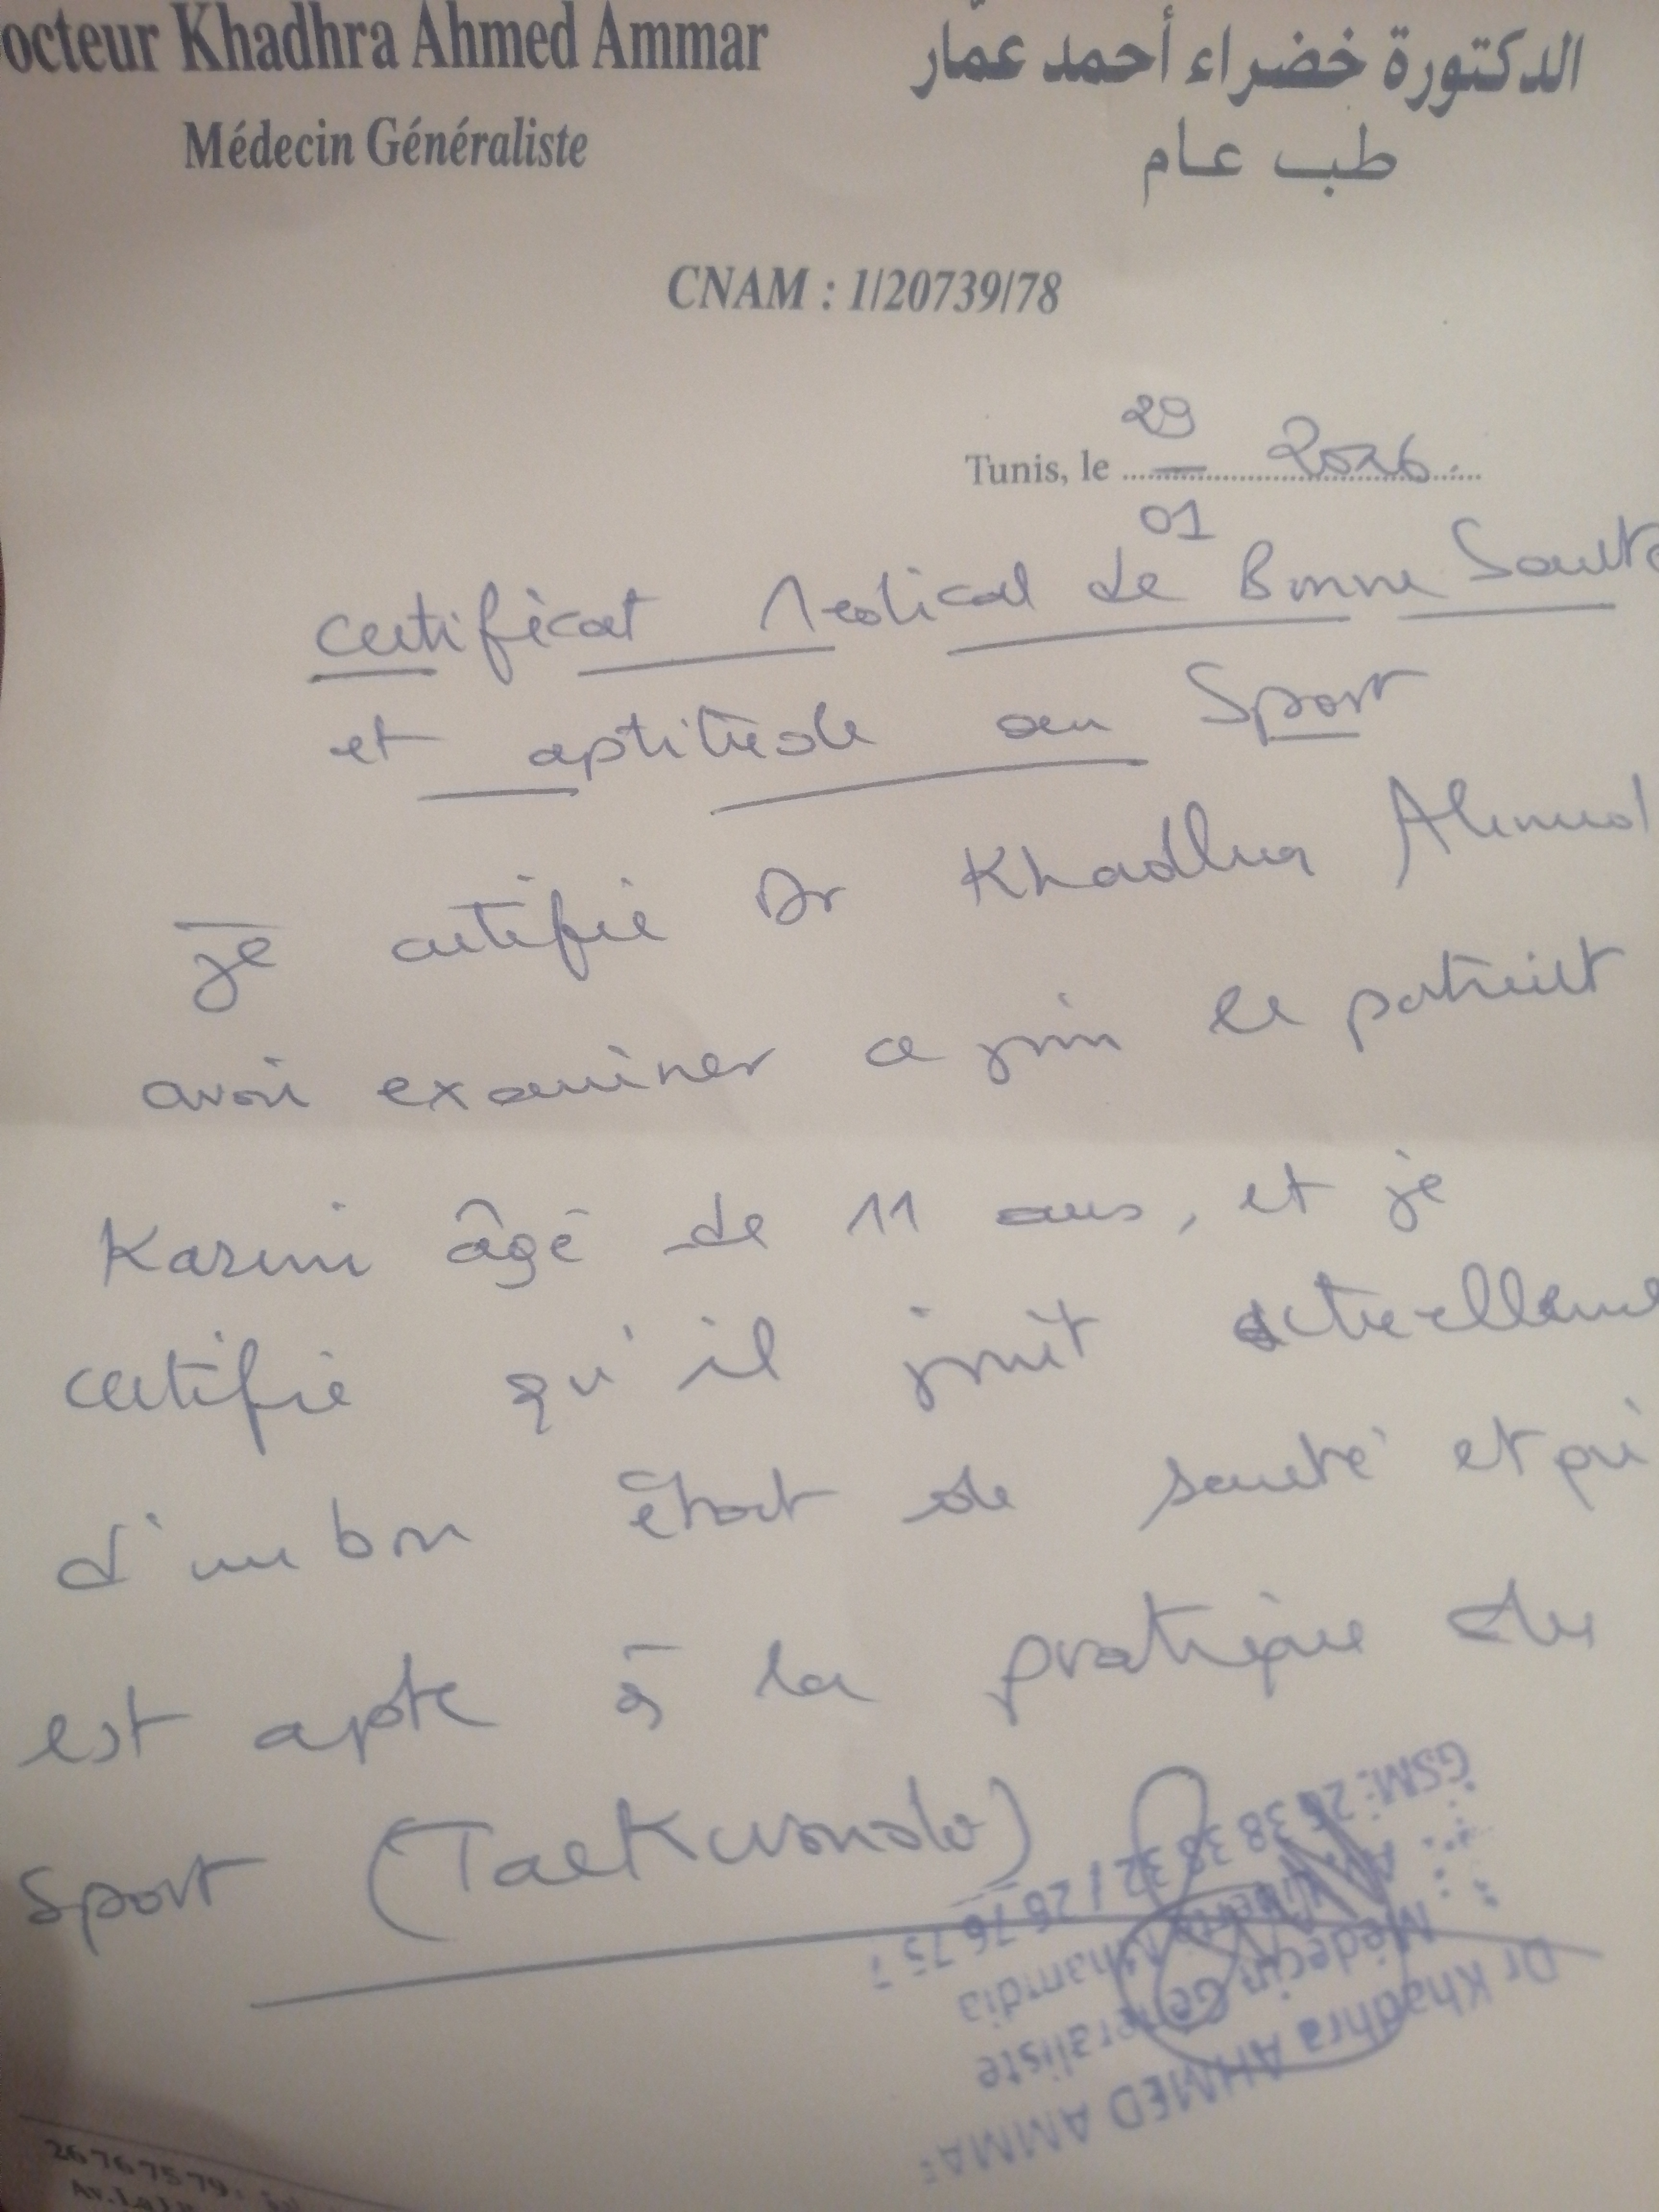 octeur Khadhra Ahmed Ammar
Médecin Généraliste
الدكتورة خضراء أحمد عمّار
طب عام
CNAM : 1/20739/78
Tunis, le 29/01 2026
certificat Medical de Bonne Santé
et aptitude au Sport
je certifie Dr Khadhra Ahmed
avoir examiner ce jour le patient
Karim âgé de 11 ans, et je
certifie qu'il jouit actuelleme
d'un bon état de santé et qu'i
est apte à la pratique du
Sport (Taekwondo)
Dr Khadhra AHMED AMMA
Médecin Généraliste
GSM: 26 38 38 32 / 26 76 75 7
26767579